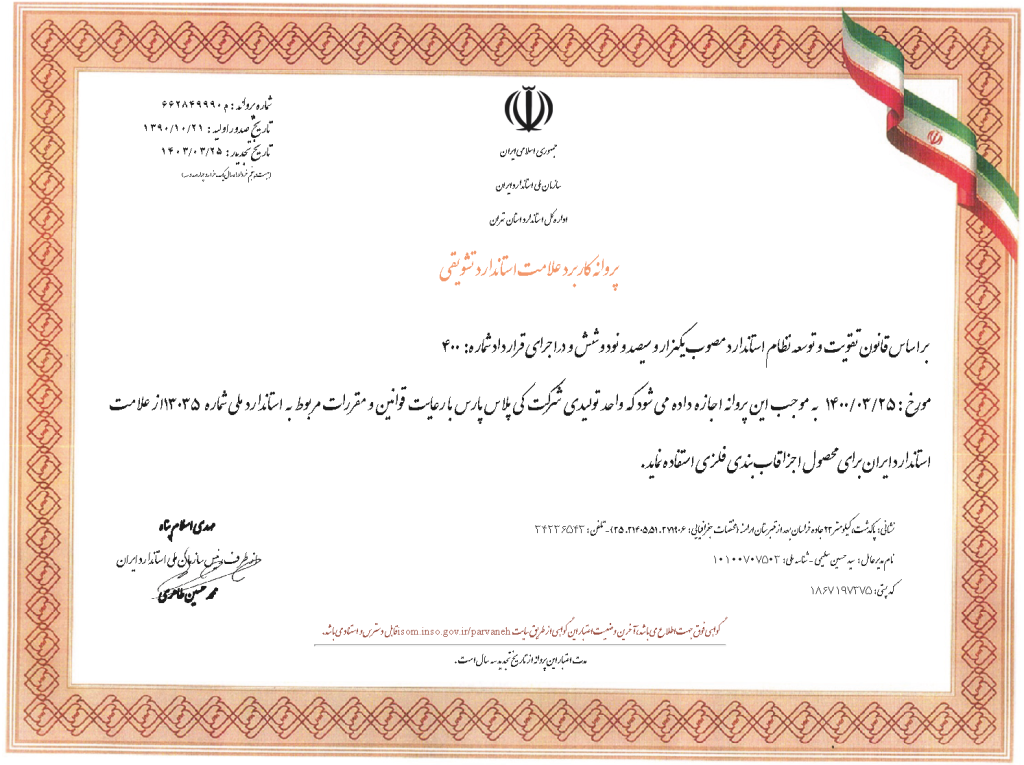 شماره پروانه : م ۶۶۲۸۴۹۹۹۰
تاریخ صدور اولیه : ۱۳۹۰/۱۰/۲۱
تاریخ تجدید : ۱۴۰۳/۰۳/۲۵
(بیست و پنجم خرداد ماه سال یک هزار و چهارصد و سه)
جمهوری اسلامی ایران
سازمان ملی استاندارد ایران
اداره کل استاندارد استان تهران
پروانه کاربرد علامت استاندارد تشویقی
بر اساس قانون تقویت و توسعه نظام استاندارد مصوب یکهزار و سیصد و نود و شش و در اجرای قرارداد شماره : ۴۰۰
مورخ : ۱۴۰۰/۰۳/۲۵ به موجب این پروانه اجازه داده می شود که واحد تولیدی شرکت کی پلاس پارس با رعایت قوانین و مقررات مربوط به استاندارد ملی شماره ۱۳۰۳۵ از علامت
استاندارد ایران برای محصول اجزا قاب بندی فلزی استفاده نماید.
نشانی: پاکدشت، کیلومتر ۲۳ جاده خراسان بعد از قبرستان ارامنه (مختصات جغرافیایی: ۳۵.۴۱۴۰۵,۵۱.۷۷۱۹۰۶) - تلفن: ۳۴۲۳۶۵۴۳
نام مدیرعامل: سید حسین سلیمی - شناسه ملی: ۱۰۱۰۰۷۰۷۵۰۳
کد پستی: ۱۸۶۷۱۹۷۳۷۵
مهدی اسلام پناه
از طرف رئیس سازمان ملی استاندارد ایران
محمد حسین طاهری
گواهی فوق جهت اطلاع می باشد، آخرین وضعیت اعتبار این گواهی از طریق سایت isom.inso.gov.ir/parvaneh قابل دسترس و استناد می باشد.
مدت اعتبار این پروانه از تاریخ تجدید سه سال است.